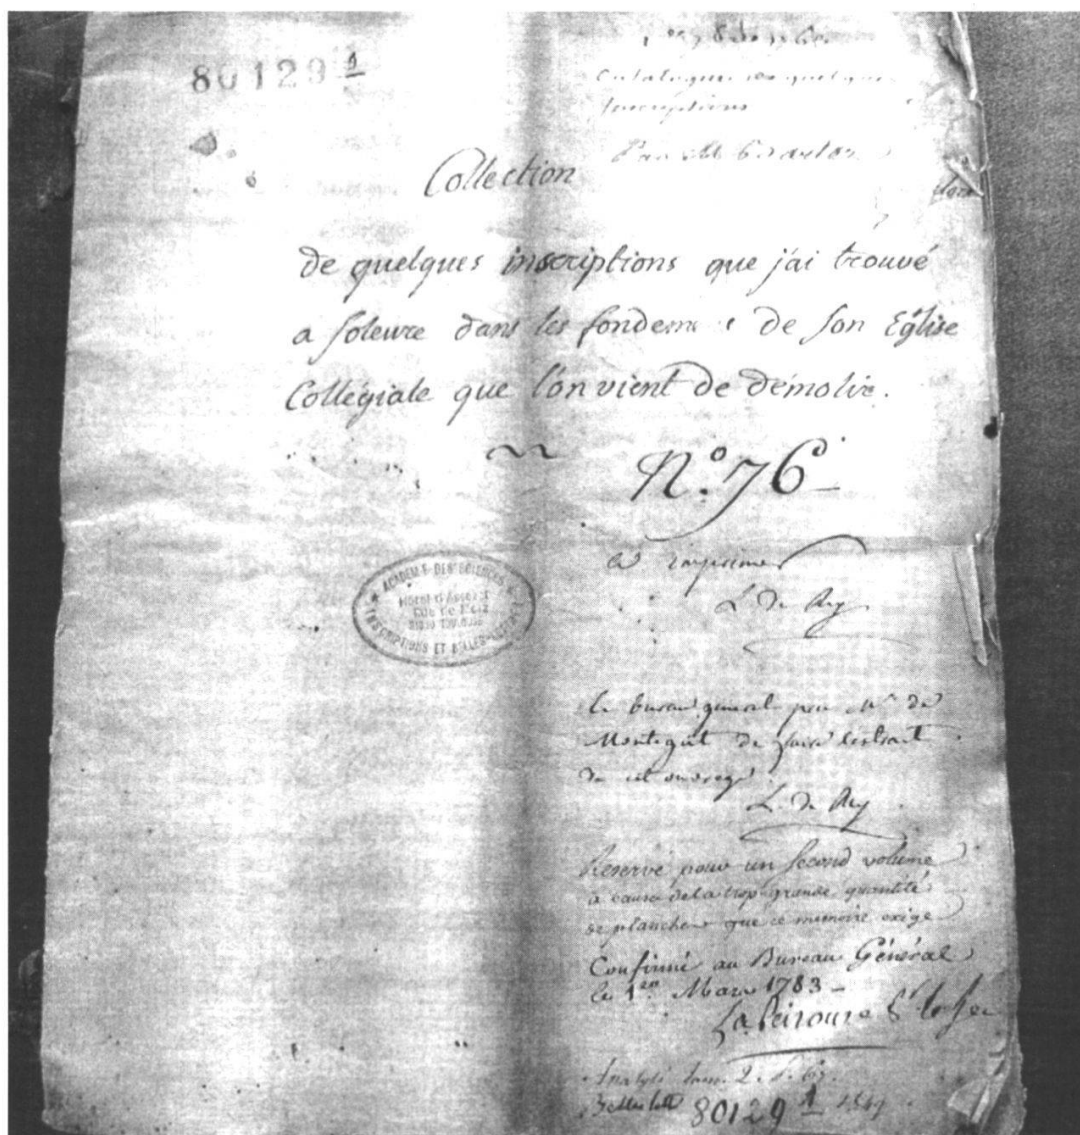 80129 1
Catalogue de quelques
Inscriptions
Par M
Collection
de quelques inscriptions que j'ai trouvé
a soleure dans les fondem de son Eglise
Collégiale que l'on vient de démolir.
N.o 76
imprimer
L. de Rey
ACADEMIE DES SCIENCES
INSCRIPTIONS ET BELLES-LETTRES
Hôtel d'Assézat
Rue de Metz
le bureau general prie Mr de
Montegut de faire lextrait
de cet ouvrage
L. de Rey
Reservé pour un second volume
a cause de la trop grande quantité
de planches que ce memoire exige
Confirmé au Bureau Général
le 1er Mars 1783
La Peirouse
Analysé tom. 2. p. 69.
80129 1